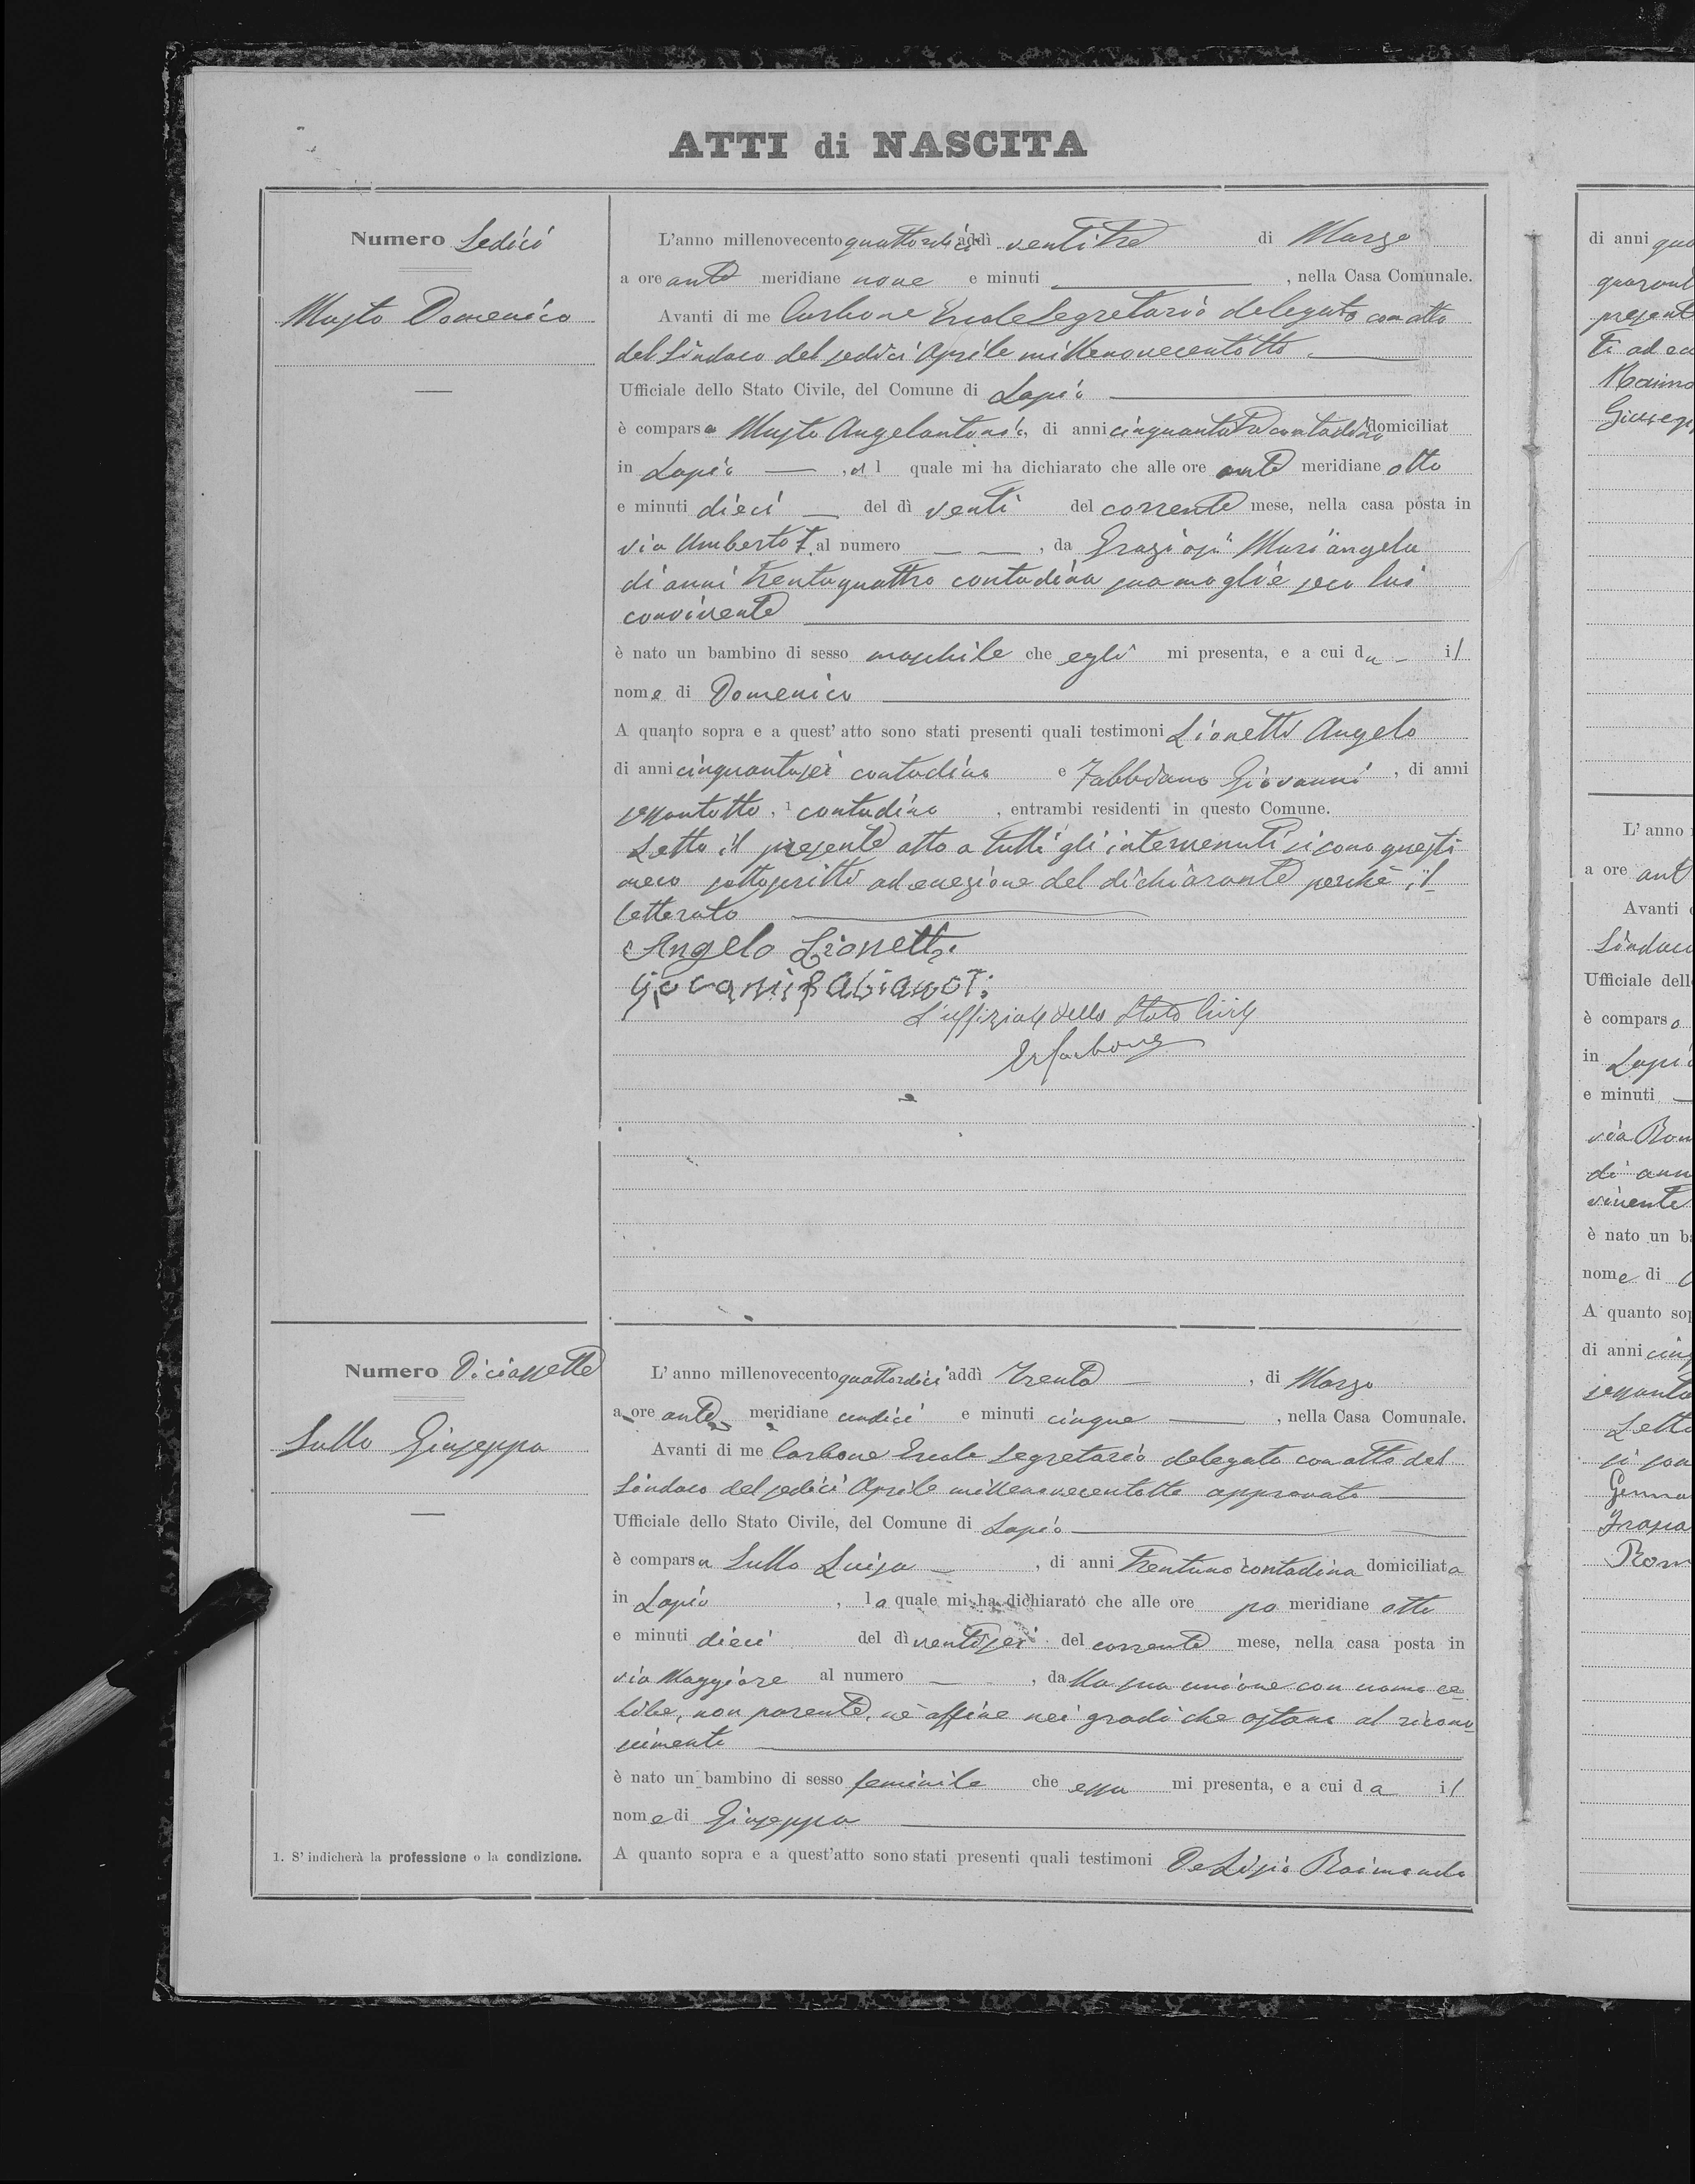 ATTI di NASCITA
Numero Sedici
Musto Domenico
L'anno millenovecentoquattordici addì ventitre di Marzo
a ore ante meridiane nove e minuti , nella Casa Comunale.
Avanti di me Carbone Ercole Segretario delegato con atto
del Sindaco del sedici Aprile millenovecentotto
Ufficiale dello Stato Civile, del Comune di Lapio
è comparso Musto Angelantonio, di anni cinquantatre contadino domiciliat
in Lapio , il quale mi ha dichiarato che alle ore ante meridiane otto
e minuti dieci del dì venti del corrente mese, nella casa posta in
via Umberto I. al numero , da Graziosi Mariangela
di anni trentaquattro contadina sua moglie seco lui
convivente
è nato un bambino di sesso maschile che egli mi presenta, e a cui da il
nome di Domenico
A quanto sopra e a quest' atto sono stati presenti quali testimoni Lionetti Angelo
di anni cinquantasei contadino e Fabbiano Giovanni , di anni
sessantotto, 1 contadino , entrambi residenti in questo Comune.
Letto il presente atto a tutti gli intervenuti si sono questi
meco sottoscritti ad eccezione del dichiarante perchè il-
letterato
Angelo Lionetti
L'uffiziale dello Stato Civile
Numero Diciassette
Sullo Giuseppa
L' anno millenovecentoquattordici addì trenta , di Marzo
a ore ante meridiane undici e minuti cinque , nella Casa Comunale.
Avanti di me Carbone Ercole Segretario delegato con atto del
Sindaco del sedici Aprile millenovecentotto approvato
Ufficiale dello Stato Civile, del Comune di Lapio
è comparsa Sullo Luisa , di anni trentuno contadina domiciliata
in Lapio , la quale mi ha dichiarato che alle ore po meridiane otto
e minuti dieci del dì ventisei del corrente mese, nella casa posta in
via Maggiore al numero , dalla sua unione con uomo ce-
libe, non parente, nè affine nei gradi che ostano al ricono-
scimento
è nato un bambino di sesso feminile che essa mi presenta, e a cui da il
nome di Giuseppa
1. S' indicherà la professione o la condizione.
A quanto sopra e a quest'atto sono stati presenti quali testimoni De Lisio Raimondo
di anni
Sindaco
Ufficiale
è comparso
in Lapio
e minuti
di
vivente
è nato un
nome di
A quanto
di anni